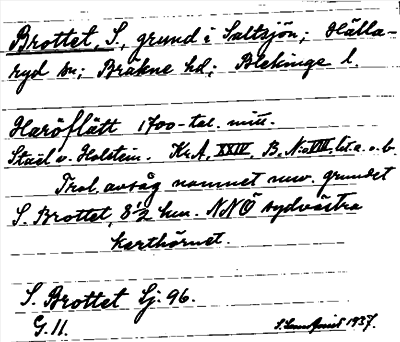 Brottet, S., grund i Saltsjön; Hälla-
ryd sn; Bräkne hd; Blekinge l.
Haröflätt 1700-tal. mitt.
Staël v. Holstein. Kr.A, XXIV, B, N:o VIII, lit a. o. b.
Trol. avsåg namnet nuv. grundet
S. Brottet, 8½ hm. NNÖ sydvästra
karthörnet.
S. Brottet Sj. 96.
G. 11.
1937.